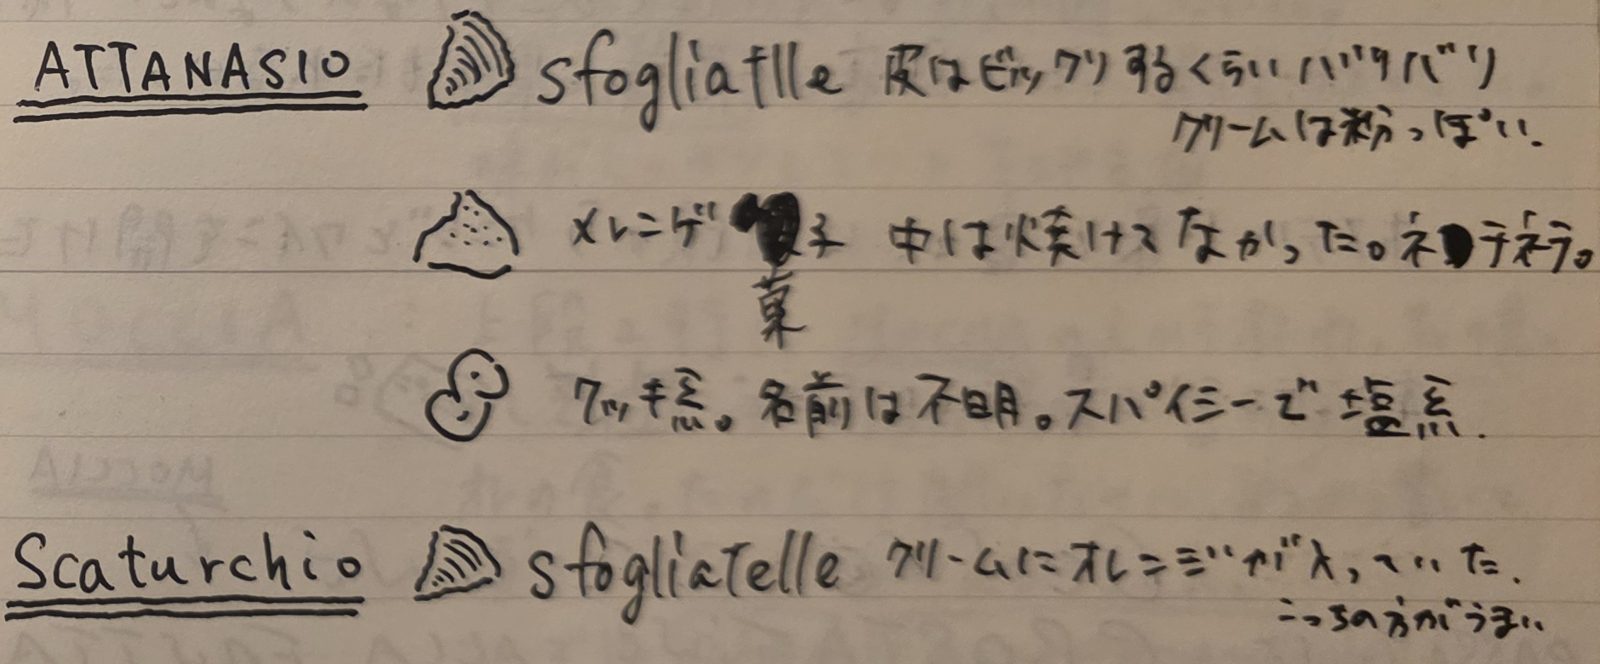 ATTANASIO sfogliatlle 皮はビックリするくらいバリバリ
クリームは粉っぽい.
メレンゲ 子 中は焼けてなかった。ネチネチ。
菓
クッキー。名前は不明。スパイシーで塩味.
Scaturchio sfogliatelle クリームにオレンジが入っていた.
こっちの方がうまい